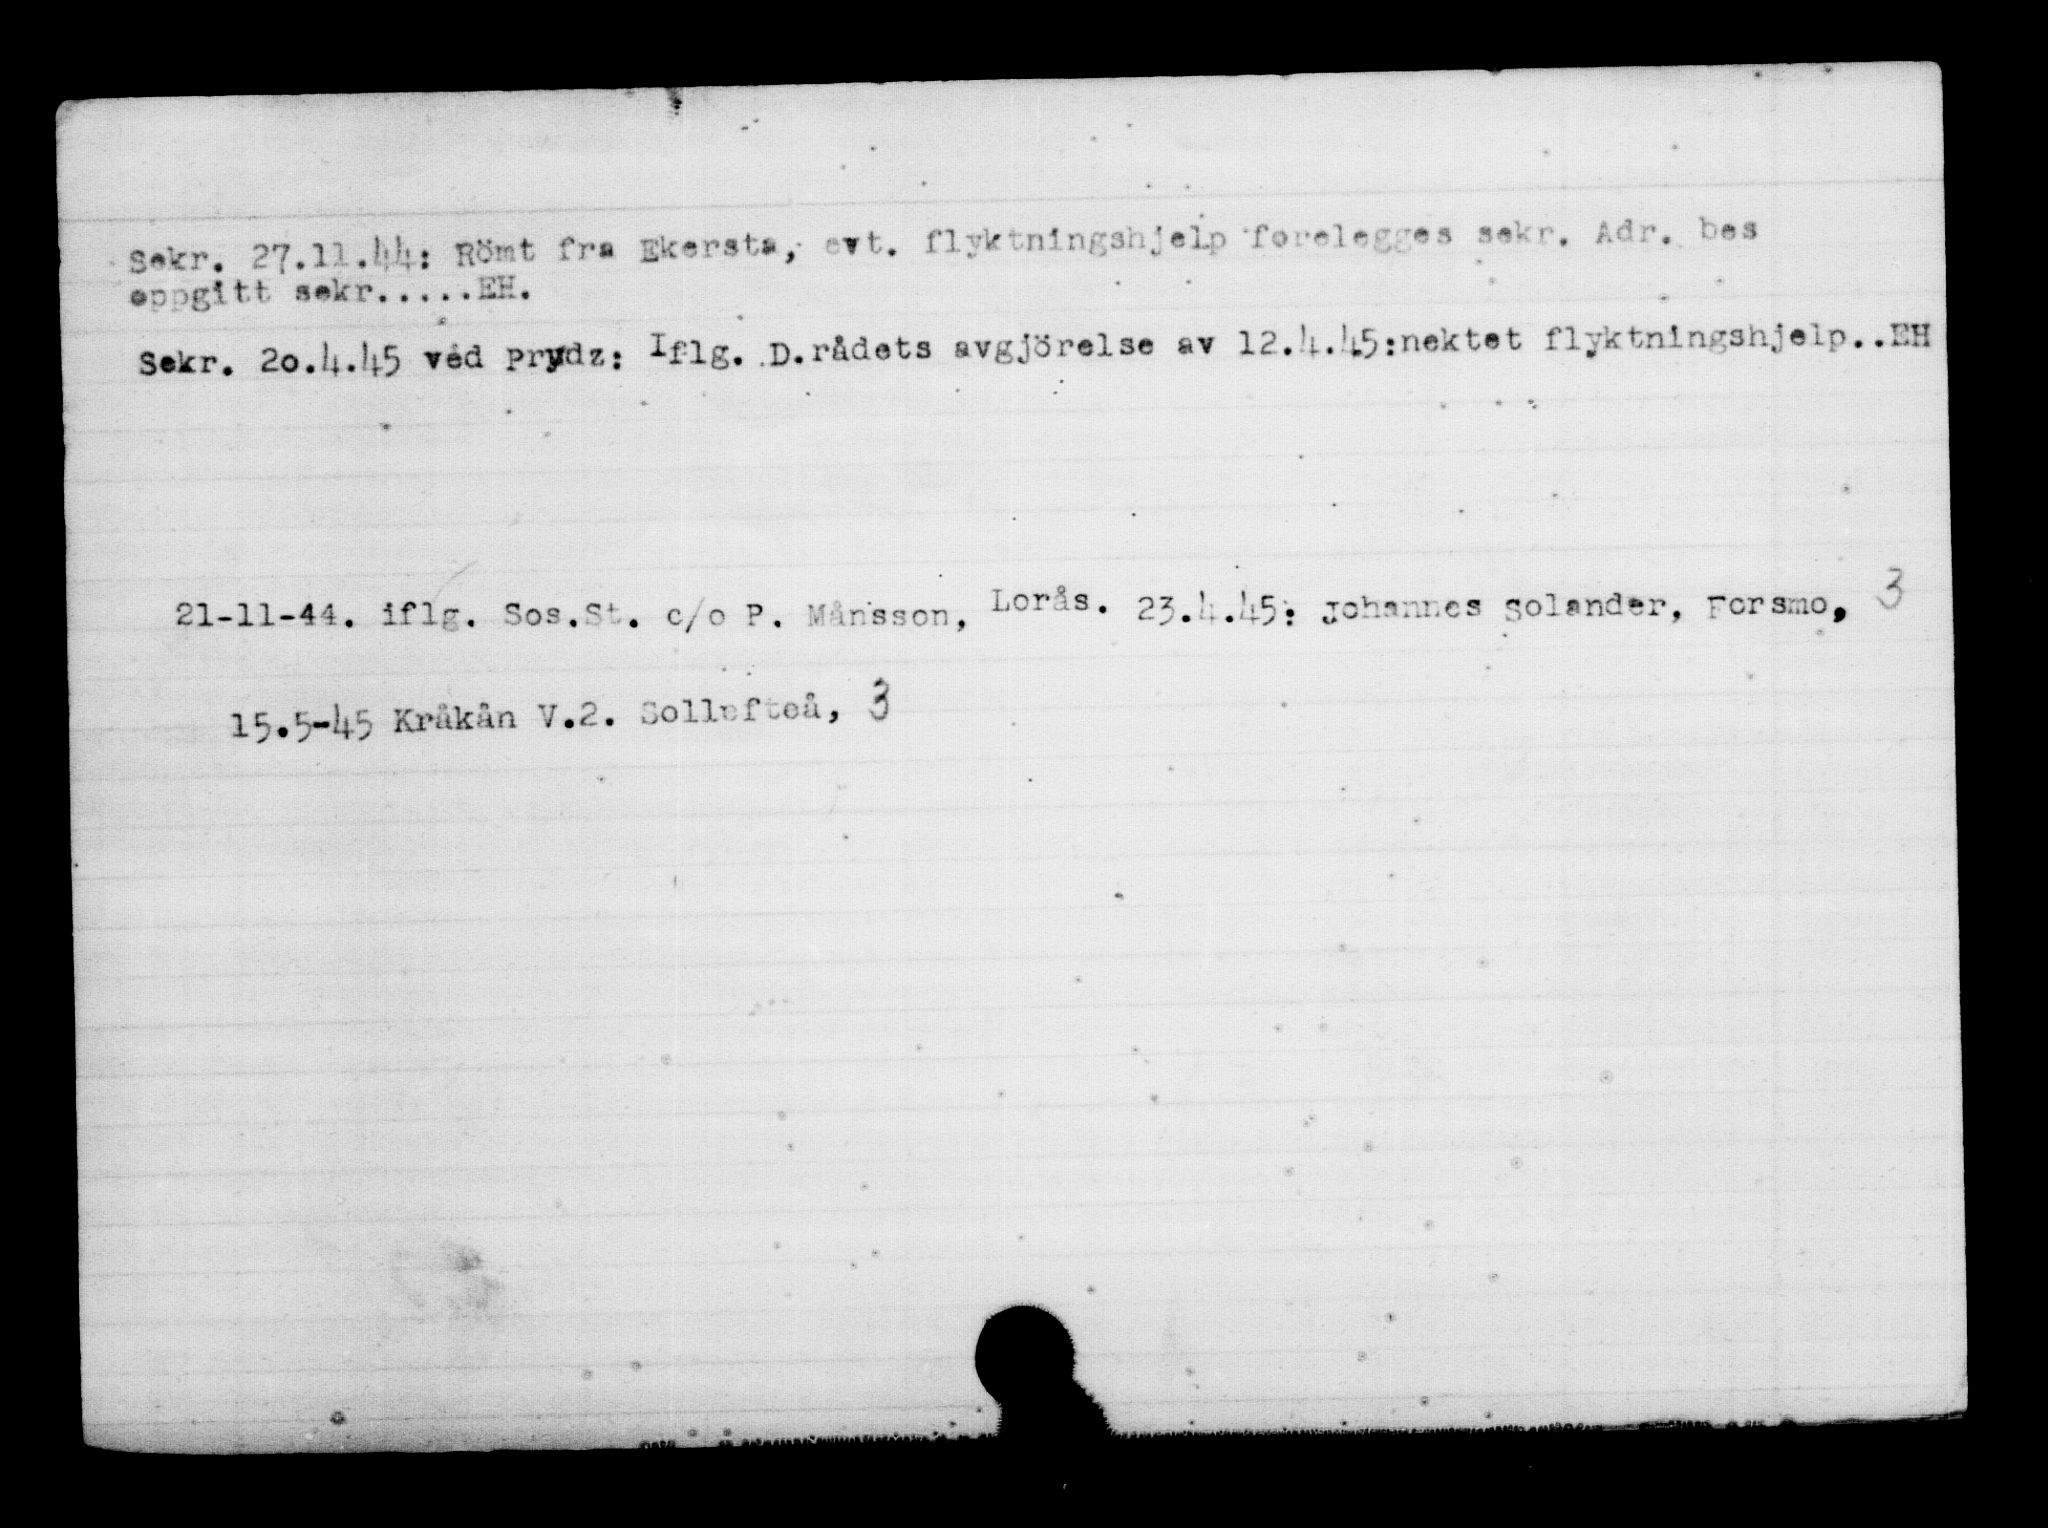 Sekr. 27.11.44: Römt fra Ekersta, evt. flyktningshjelp forelegges sekr. Adr. bes
oppgitt sekr.....EH.
Sekr. 20.4.45 ved Prydz: Iflg. D.rådets avgjörelse av 12.4.45:nektet flyktningshjelp..EH
21-11-44. iflg. Sos.St. c/o P. Månsson, Lorås. 23.4.45: Johannes Solander, Forsmo, 3
15.5-45 Kråkån V.2. Sollefteå, 3